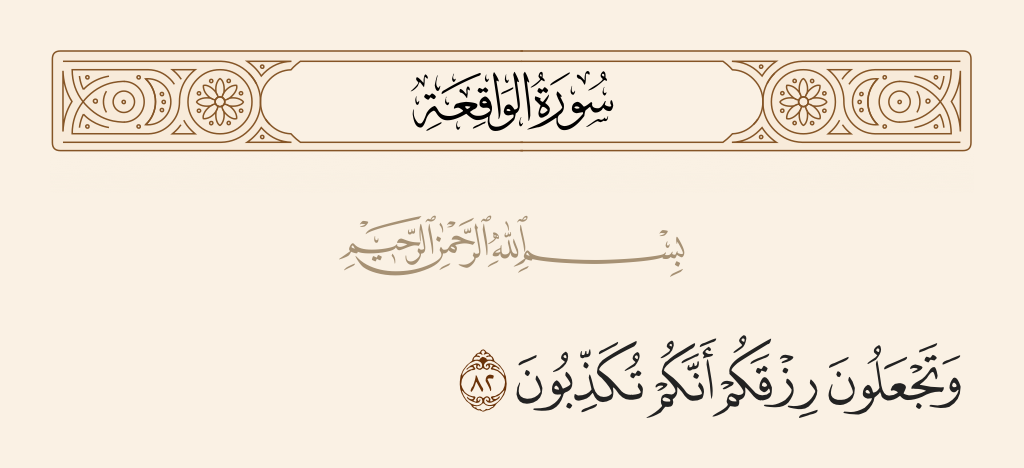 سُورَةُ الوَاقِعَةِ
بِسْمِ ٱللَّهِ ٱلرَّحْمَٰنِ ٱلرَّحِيمِ
وَتَجْعَلُونَ رِزْقَكُمْ أَنَّكُمْ تُكَذِّبُونَ ٨٢